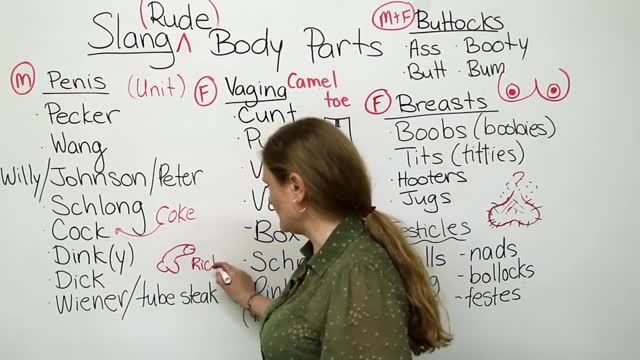 (Rude)
Slang ^ Body Parts
(M) Penis (Unit)
· Pecker
· Wang
Willy/Johnson/Peter
· Schlong
· Cock Coke
· Dink(y)
· Dick
· Wiener/tube steak
Rich
(F) Vagina Camel
toe
· Cunt
- Box
(M+F) Buttocks
· Ass · Booty
· Butt · Bum
(F) Breasts
· Boobs (boobies)
· Tits (titties)
· Hooters
· Jugs
?
- nads
- bollocks
- testes